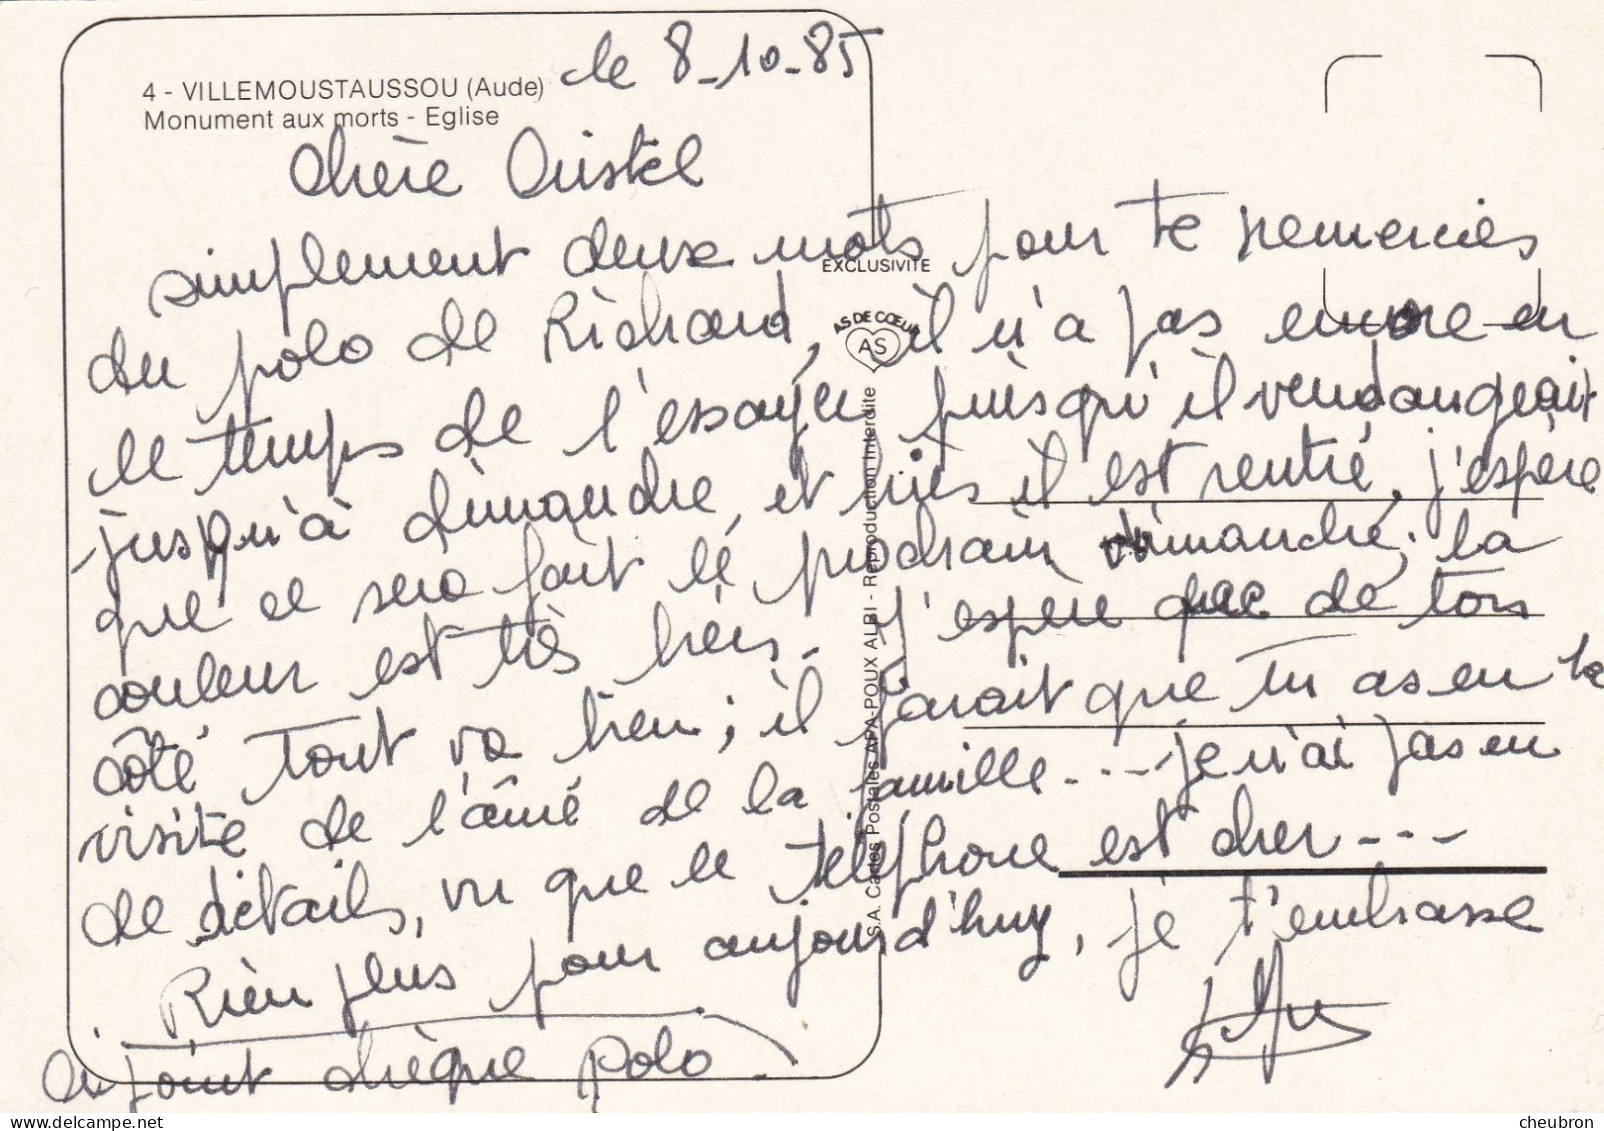 4 - VILLEMOUSTAUSSOU (Aude)
Monument aux morts - Eglise
le 8-10-85
Chère Cristel
simplement deux mots pour te remercier
du polo de Richard, il n'a pas encore eu
le temps de l'essayer puisqu'il vendangeait
jusqu'à dimanche, et il est rentré, j'espère
que ce sera fait le prochain dimanche; la
couleur est très bien. J'espère que de ton
côté tout va bien; il parait que tu as eu la
visite de l'âiné de la famille... je n'ai pas eu
de détails, vu que le téléphone est cher ---
Rien plus pour aujourd'huy, je t'embrasse
Ci joint chèque polo.
EXCLUSIVITE
AS DE CŒUR
AS
S.A. Cartes Postales APA-POUX ALBI - Reproduction Interdite
cheubron